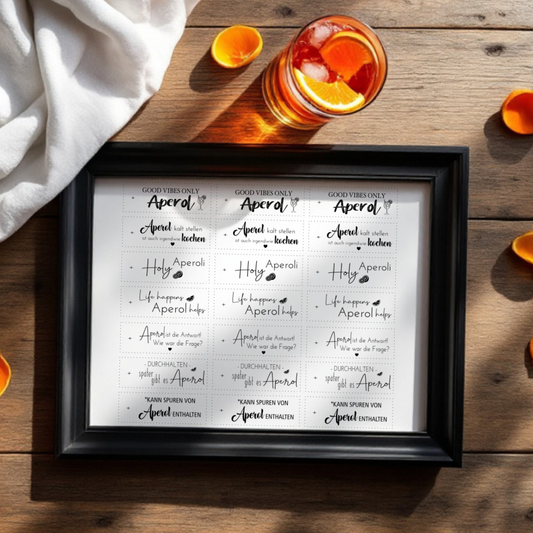 GOOD VIBES ONLY GOOD VIBES ONLY GOOD VIBES ONLY
Aperol Aperol Aperol
Aperol kalt stellen Aperol kalt stellen Aperol kalt stellen
ist auch irgendwie kochen ist auch irgendwie kochen ist auch irgendwie kochen
Holy Aperoli Holy Aperoli Holy Aperoli
Life happens Life happens Life happens
Aperol helps Aperol helps Aperol helps
Aperol ist die Antwort! Aperol ist die Antwort! Aperol ist die Antwort!
Wie war die Frage? Wie war die Frage? Wie war die Frage?
- DURCHHALTEN - - DURCHHALTEN - - DURCHHALTEN -
später gibt es Aperol später gibt es Aperol später gibt es Aperol
*KANN SPUREN VON *KANN SPUREN VON *KANN SPUREN VON
Aperol ENTHALTEN Aperol ENTHALTEN Aperol ENTHALTEN